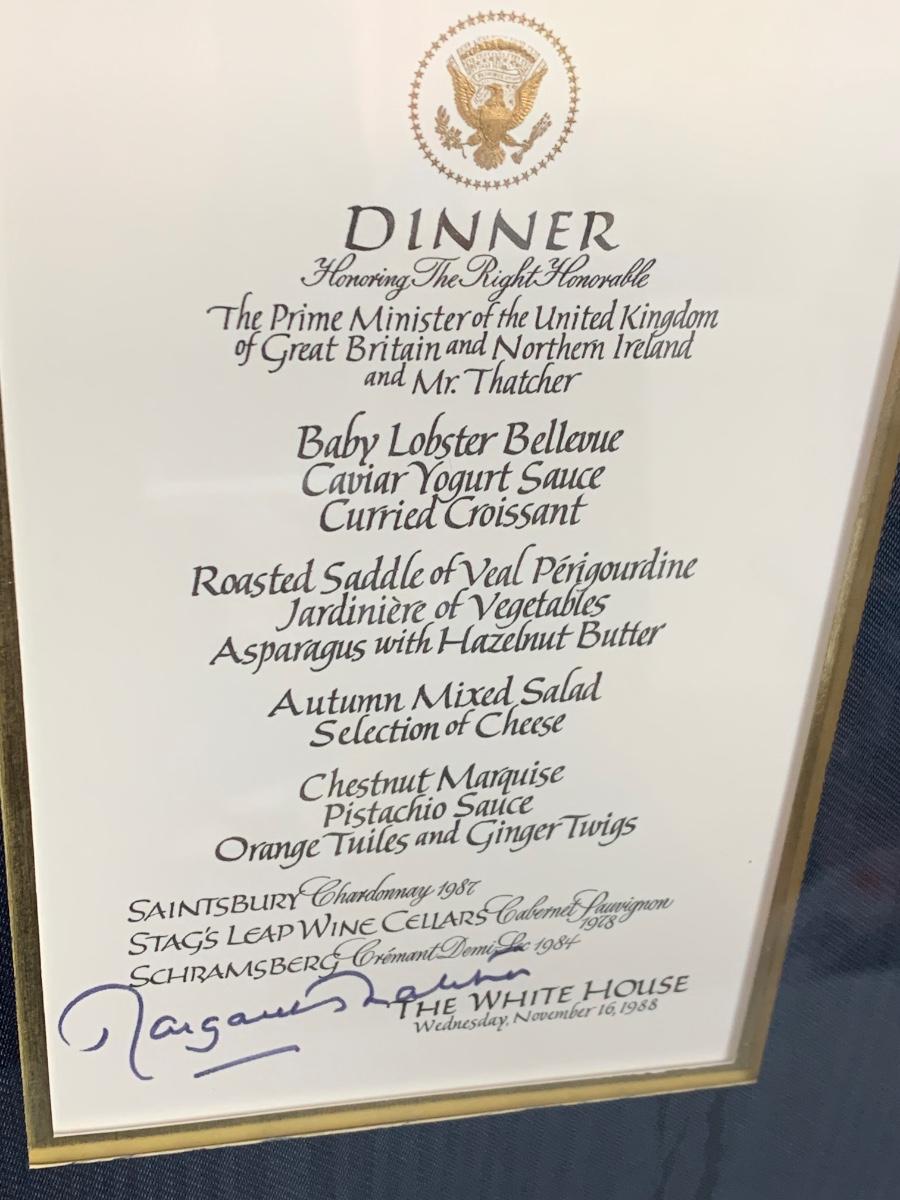 DINNER
Honoring The Right Honorable
The Prime Minister of the United Kingdom
of Great Britain and Northern Ireland
and Mr. Thatcher
Baby Lobster Bellevue
Caviar Yogurt Sauce
Curried Croissant
Roasted Saddle of Veal Périgourdine
Jardinière of Vegetables
Asparagus with Hazelnut Butter
Autumn Mixed Salad
Selection of Cheese
Chestnut Marquise
Pistachio Sauce
Orange Tuiles and Ginger Twigs
SAINTSBURY Chardonnay 1987
STAG'S LEAP WINE CELLARS Cabernet Sauvignon 1978
SCHRAMSBERG Crémant Demi-Sec 1984
Margaret Thatcher
THE WHITE HOUSE
Wednesday, November 16, 1988